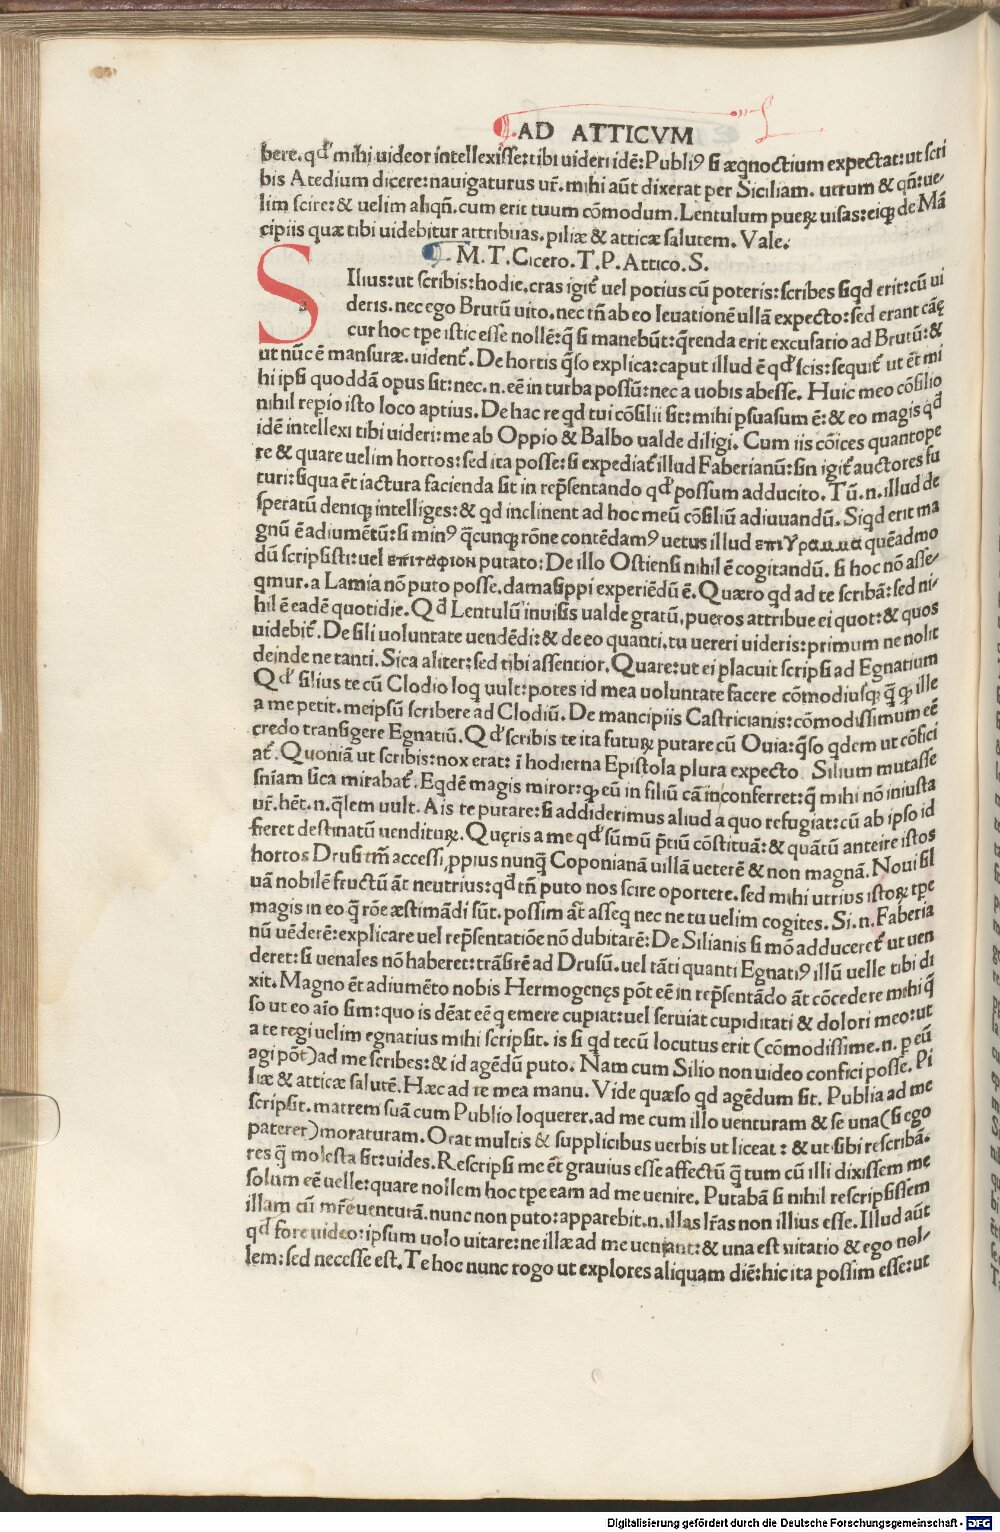 AD ATTICVM
bere. qđ mihi uideor intellexisse: tibi uideri idē: Publiꝰ si æqnoctium expectat: ut scri
bis Atedium dicere: nauigaturus ur̄. mihi aūt dixerat per Siciliam. utrum & qn̄: ue-
lim scire: & uelim aliqn̄. cum erit tuum cōmodum. Lentulum pueꝝ uisas: eiqꝫ de Mā
cipiis quæ tibi uidebitur attribuas. piliæ & atticæ salutem. Vale.
M. T. Cicero. T. P. Attico. S.
S Ilius: ut scribis: hodie. cras igit̄ uel potius cū poteris: scribes siqd erit: cū ui
deris. nec ego Brutū uito. nec tn̄ ab eo leuationē ullā expecto: sed erant cāę
cur hoc tpe istic esse nollē: q̄ si manebūt: q̄renda erit excusatio ad Brutū: &
ut nūc ē mansuræ. uident̄. De hortis q̄so explica: caput illud ē qđ scis: sequit̄ ut ēt mi
hi ipsi quoddā opus sit: nec. n. eē in turba possū: nec a uobis abesse. Huic meo cōsilio
nihil repio isto loco aptius. De hac re qd tui cōsilii sit: mihi psuasum ē: & eo magis qđ
idē intellexi tibi uideri: me ab Oppio & Balbo ualde diligi. Cum iis cōices quantope
re & quare uelim hortos: sed ita posse: si expediat̄ illud Faberianū: sin igit̄ auctores fu
turi: siqua ēt iactura facienda sit in rep̄sentando qđ possum adducito. Tū. n. illud de
speratū deniqꝫ intelliges: & qd inclinent ad hoc meū cōsiliū adiuuandū. Siqd erit ma
gnū ē adiumētū: si minꝰ q̄cunqꝫ rōne contēdamꝰ uetus illud επιγραμμα quēadmo
dū scripsisti: uel επιταφιον putato: De illo Ostiensi nihil ē cogitandū. si hoc nō asse-
qmur. a Lamia nō puto posse. damasippi experiēdū ē. Quæro qd ad te scribā: sed ni-
hil ē eadē quotidie. Qđ Lentulū inuisis ualde gratū, pueros attribue ei quot: & quos
uidebit̄. De sili uoluntate uendēdi: & de eo quanti. tu uereri uideris: primum ne nolit
deinde ne tanti. Sica aliter: sed tibi assentior. Quare: ut ei placuit scripsi ad Egnatium
Qđ silius te cū Clodio loq uult: potes id mea uoluntate facere cōmodiusqꝫ q̄ qꝫ ille
a me petit. meipsū scribere ad Clodiū. De mancipiis Castricianis: cōmodissimum eē
credo transigere Egnatiū. Qđ scribis te ita futuꝝ putare cū Ouia: q̄so qdem ut cōfici
at̄. Quoniā ut scribis: nox erat: ī hodierna Epistola plura expecto. Silium mutasse
sniam sica mirabat̄. Eqdē magis miror: qꝫ cū in filiū cām conferret: q̄ mihi nō iniusta
ur̄. hēt. n. q̄lem uult. Ais te putare: si addiderimus aliud a quo refugiat: cū ab ipso id
fieret destinatū uendituꝝ. Quęris a me qđ sūmū p̄tiū cōstituā: & quātū anteire istos
hortos Drusi tm̄ accessi, ꝓpius nunq̄ Coponianā uillā ueterē & non magnā. Noui sil
uā nobilē fructū āt neutrius: qđ tn̄ puto nos scire oportere. sed mihi utrius istoꝝ tpe
magis in eo q̄ rōe æstimādi sūt. possim āt asseq nec ne tu uelim cogites. Si. n. Faberia
nū uēderē: explicare uel rep̄sentatiōe nō dubitarē: De Silianis si mō adduceret̄ ut uen
deret: si uenales nō haberet: trāsirē ad Drusū. uel tāti quanti Egnatiꝰ illū uelle tibi di
xit. Magno ēt adiumēto nobis Hermogenęs pōt eē in rep̄sentādo āt cōcedere mihi q̄
so ut eo aīo sim: quo is dēat eē q emere cupiat: uel seruiat cupiditati & dolori meo: ut
a te regi uelim egnatius mihi scripsit. is si qd tecū locutus erit (cōmodissime. n. p eū
agi pōt) ad me scribes: & id agēdū puto. Nam cum Silio non uideo confici posse. Pi
liæ & atticæ salutē. Hæc ad te mea manu. Vide quæso qd agēdum sit. Publia ad me
scripsit. matrem suā cum Publio loquerer. ad me cum illo uenturam & se una (si ego
paterer) moraturam. Orat multis & supplicibus uerbis ut liceat: & ut sibi rescribā.
res q̄ molesta sit: uides. Rescripsi me ēt grauius esse affectū q̄ tum cū illi dixissem me
solum eē uelle: quare nollem hoc tpe eam ad me uenire. Putabā si nihil rescripsissem
illam cū mr̄e uenturā. nunc non puto: apparebit. n. illas lr̄as non illius esse. Illud aūt
qđ fore uideo: ipsum uolo uitare: ne illæ ad me ueniant: & una est uitatio & ego nol-
lem: sed necesse est. Te hoc nunc rogo ut explores aliquam diē: hic ita possim esse: ut
Digitalisierung gefördert durch die Deutsche Forschungsgemeinschaft - DFG